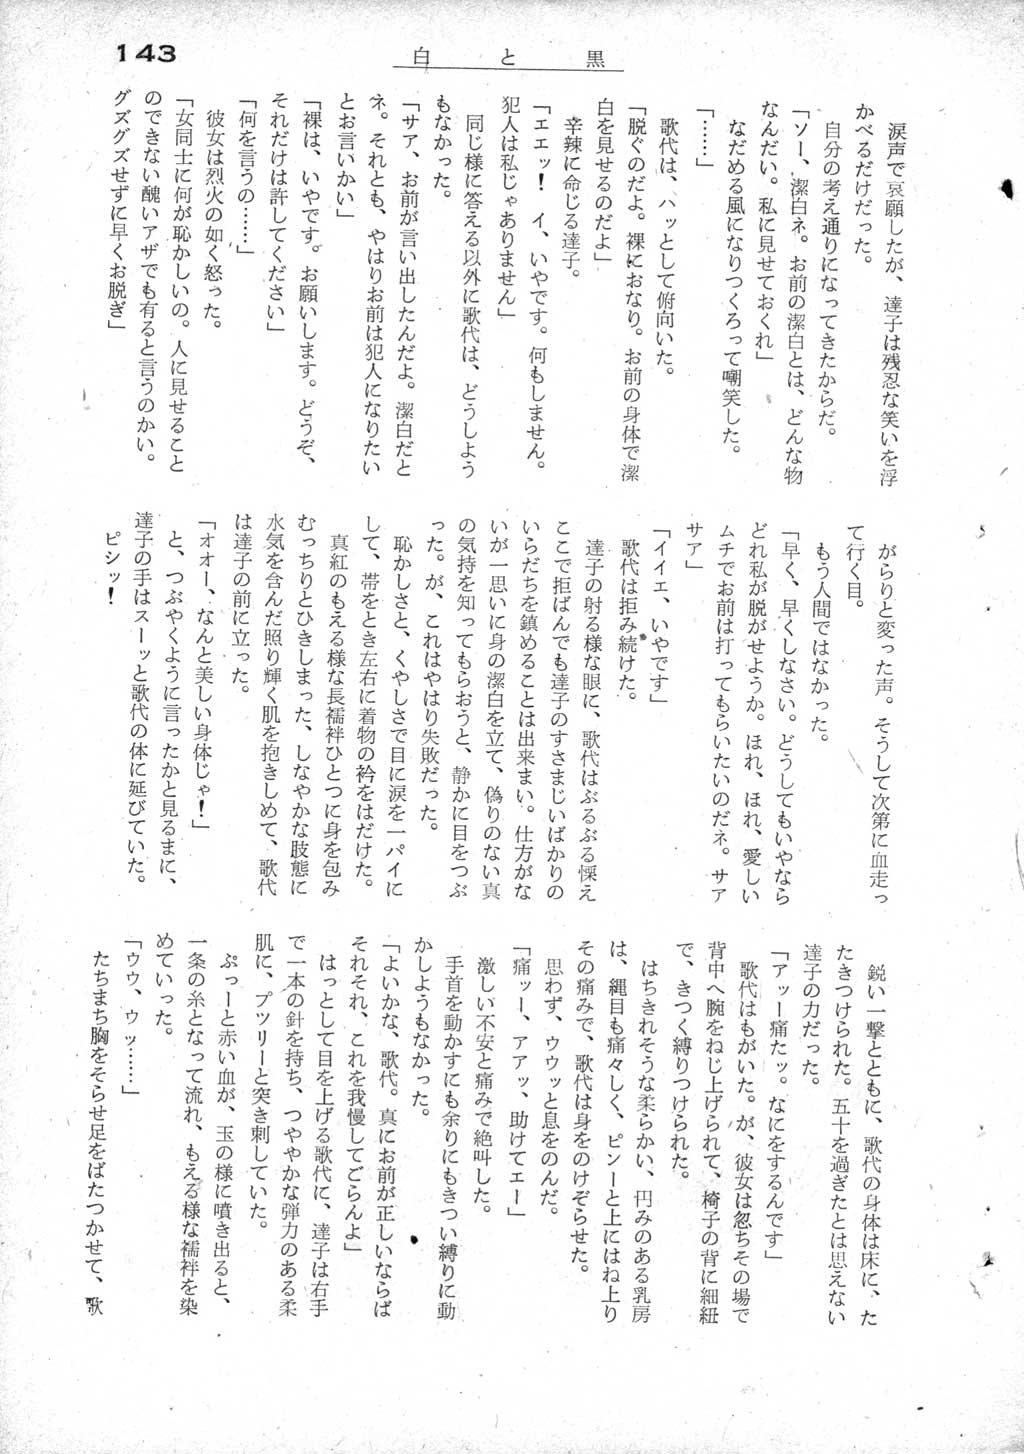 143
白と黒
涙声で哀願したが、達子は残忍な笑いを浮
かべるだけだった。
自分の考え通りになってきたからだ。
「ソー、潔白ネ。お前の潔白とは、どんな物
なんだい。私に見せておくれ」
なだめる風になりつくろって嘲笑した。
「……」
歌代は、ハッとして俯向いた。
「脱ぐのだよ。裸におなり。お前の身体で潔
白を見せるのだよ」
辛辣に命じる達子。
「エエッ！　イ、いやです。何もしません。
犯人は私じゃありません」
同じ様に答える以外に歌代は、どうしよう
もなかった。
「サア、お前が言い出したんだよ。潔白だと
ネ。それとも、やはりお前は犯人になりたい
とお言いかい」
「裸は、いやです。お願いします。どうぞ、
それだけは許してください」
「何を言うの……」
彼女は烈火の如く怒った。
「女同士に何が恥かしいの。人に見せること
のできない醜いアザでも有ると言うのかい。
グズグズせずに早くお脱ぎ」
がらりと変った声。そうして次第に血走っ
て行く目。
もう人間ではなかった。
「早く、早くしなさい。どうしてもいやなら
どれ私が脱がせようか。ほれ、ほれ、愛しい
ムチでお前は打ってもらいたいのだネ。サア
サア」
「イイエ、いやです」
歌代は拒み続けた。
達子の射る様な眼に、歌代はぶるぶる慄え
ここで拒ばんでも達子のすさまじいばかりの
いらだちを鎮めることは出来まい。仕方がな
いが一思いに身の潔白を立て、偽りのない真
の気持を知ってもらおうと、静かに目をつぶ
った。が、これはやはり失敗だった。
恥かしさと、くやしさで目に涙を一パイに
して、帯をとき左右に着物の衿をはだけた。
真紅のもえる様な長襦袢ひとつに身を包み
むっちりとひきしまった、しなやかな肢態に
水気を含んだ照り輝く肌を抱きしめて、歌代
は達子の前に立った。
「オオー、なんと美しい身体じゃ！」
と、つぶやくように言ったかと見るまに、
達子の手はスーッと歌代の体に延びていた。
ピシッ！
鋭い一撃とともに、歌代の身体は床に、た
たきつけられた。五十を過ぎたとは思えない
達子の力だった。
「アッー痛たッ。なにをするんです」
歌代はもがいた。が、彼女は忽ちその場で
背中へ腕をねじ上げられて、椅子の背に細紐
で、きつく縛りつけられた。
はちきれそうな柔らかい、円みのある乳房
は、縄目も痛々しく、ピンーと上にはね上り
その痛みで、歌代は身をのけぞらせた。
思わず、ウウッと息をのんだ。
「痛ッー、アアッ、助けてエー」
激しい不安と痛みで絶叫した。
手首を動かすにも余りにもきつい縛りに動
かしようもなかった。
「よいかな、歌代。真にお前が正しいならば
それそれ、これを我慢してごらんよ」
はっとして目を上げる歌代に、達子は右手
で一本の針を持ち、つややかな弾力のある柔
肌に、プツリーと突き刺していた。
ぷっーと赤い血が、玉の様に噴き出ると、
一条の糸となって流れ、もえる様な襦袢を染
めていった。
「ウウ、ウッ……」
たちまち胸をそらせ足をばたつかせて、歌